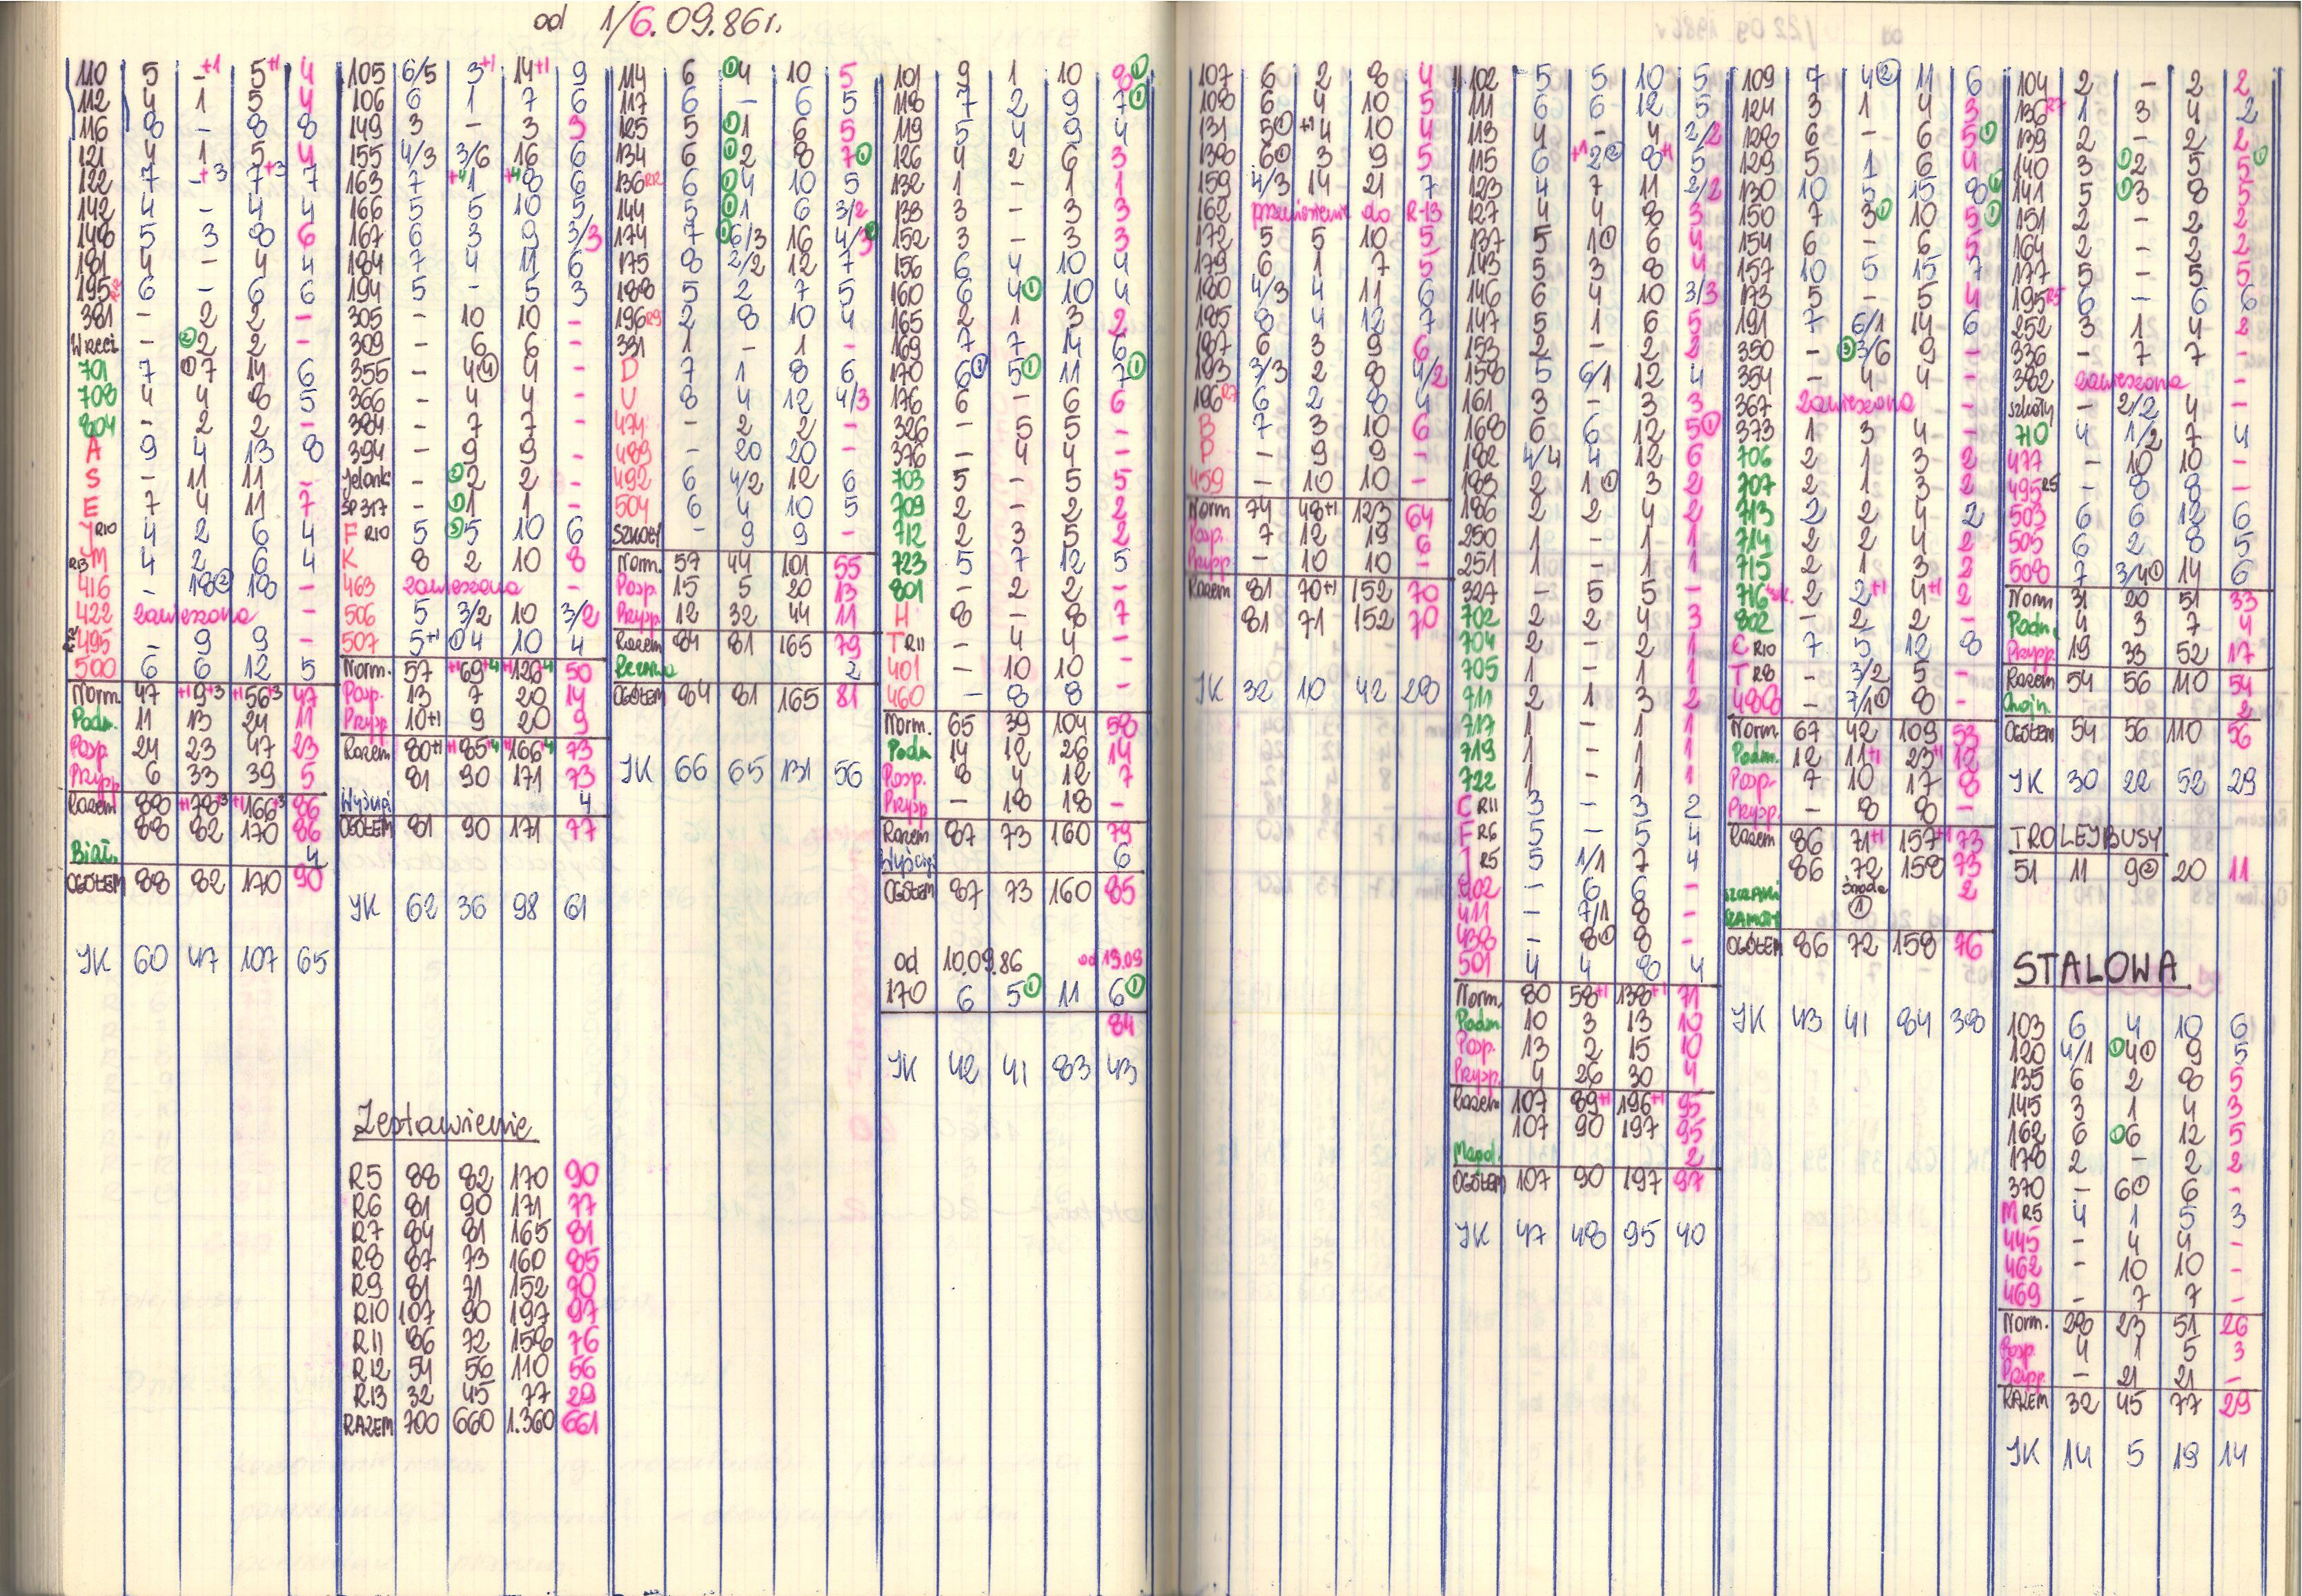 od 1/6.09.86r.
110 5 -+1 5+1 4
112 4 1 5 4
116 8 - 8 8
121 4 1 5 4
122 7 -+3 7+3 7
142 4 - 4 4
148 5 3 8 6
181 4 - 4 4
195 6 - 6 6
381 - 2 2 -
Wreci - ②2 2 -
701 7 ①7 14 6
708 4 4 8 5
804 - 2 2 -
A 9 4 13 8
S - 11 11 -
E 7 4 11 7
J R10 4 2 6 4
R13 M 4 2 6 4
416 - 18② 18 -
422 zawieszona -
495 - 9 9 -
500 6 6 12 5
Norm. 47 +1 9+3 +1 56+3 47
Podm. 11 13 24 11
Posp. 24 23 47 23
Przysp. 6 33 39 5
Razem 88 +1 78+3 +1 166+3 86
88 82 170 86
Biał. 4
OGÓŁEM 88 82 170 90
JK 60 47 107 65
105 6/5 3+1 14+1 9
106 6 1 7 6
149 3 - 3 3
155 4/3 3/6 16 6
163 7 +4 1 +4 8 6
166 5 5 10 5
167 6 3 9 3/3
184 7 4 11 6
194 5 - 5 3
305 - 10 10 -
309 - 6 6 -
355 - 4④ 4 -
366 - 4 4 -
384 - 7 7 -
394 - 9 9 -
Jelonki - ②2 2 -
SP 317 - ①1 1 -
F R10 5 ⑤5 10 6
K 8 2 10 8
463 zawieszona -
506 5 3/2 10 3/2
507 5+1 ①4 10 4
Norm. 57 +1 69+4 +1 126+4 50
Posp. 13 7 20 14
Przysp. 10+1 9 20 9
Razem 80+1 +1 85+4 +1 166+4 73
81 90 171 73
Wyścigi 4
OGÓŁEM 81 90 171 77
JK 62 36 98 61
Zestawienie
R5 88 82 170 90
R6 81 90 171 77
R7 84 81 165 81
R8 87 73 160 85
R9 81 71 152 70
R10 107 90 197 97
R11 86 72 158 76
R12 54 56 110 56
R13 32 45 77 29
RAZEM 700 660 1.360 661
114 6 ①4 10 5
117 6 - 6 5
125 5 ①1 6 5
134 6 ①2 8 7①
136 R12 6 ①4 10 5
144 5 ①1 6 3/2
174 7 ①6/3 16 4/3①
175 8 2/2 12 7
188 5 2 7 5
196 R9 2 8 10 4
331 1 - 1 -
D 7 1 8 6
U 8 4 12 4/3
474 - 2 2 -
489 - 20 20 -
492 6 4/2 12 6
504 6 4 10 5
SZKOŁY - 9 9 -
Norm. 57 44 101 55
Posp. 15 5 20 13
Przysp. 12 32 44 11
Razem 84 81 165 79
Rezerwa 2
OGÓŁEM 84 81 165 81
JK 66 65 131 56
101 9 1 10 8①
118 7 2 9 7①
119 5 4 9 4
126 4 2 6 3
132 1 - 1 1
138 3 - 3 3
152 3 - 3 3
156 6 4 10 4
160 6 4① 10 4
165 2 1 3 2
169 7 7 14 6
170 6① 5① 11 7①
176 6 - 6 6
326 - 5 5 -
376 - 4 4 -
703 5 - 5 5
709 2 - 2 2
712 2 3 5 2
723 5 7 12 5
801 - 2 2 -
H 8 - 8 7
T R11 - 4 4 -
401 - 10 10 -
460 - 8 8 -
Norm. 65 39 104 58
Podm 14 12 26 14
Posp. 8 4 12 7
Przysp. - 18 18 -
Razem 87 73 160 79
Wyścigi 6
OGÓŁEM 87 73 160 85
od 10.09.86 od 19.09
170 6 5① 11 6①
84
JK 42 41 83 43
107 6 2 8 4
108 6 4 10 5
131 5① +1 4 10 4
138 6① 3 9 5
159 4/3 14 21 7
162 przeniesienie do R-13
172 5 5 10 5
179 6 1 7 5
180 4/3 4 11 6
185 8 4 12 7
187 6 3 9 6
193 3/3 2 8 4/2
196 R7 6 2 8 4
B 7 3 10 6
P - 9 9 -
459 - 10 10 -
Norm 74 48+1 123 64
Posp. 7 12 19 6
Przysp - 10 10 -
Razem 81 70+1 152 70
81 71 152 70
JK 32 10 42 28
102 5 5 10 5
111 6 6 12 5
113 4 - 4 2/2
115 6 +1 2② 8+1 5
123 4 7 11 2/2
127 4 4 8 3
137 5 1① 6 4
143 5 3 8 4
146 6 4 10 3/3
147 5 1 6 5
153 2 - 2 2
158 5 6/1 12 4
161 3 - 3 3
168 6 6 12 5①
182 4/4 4 12 6
183 2 1① 3 2
186 2 2 4 2
250 1 - 1 1
251 1 - 1 1
327 - 5 5 -
702 2 2 4 3
704 2 - 2 1
705 1 - 1 1
711 2 1 3 2
717 1 - 1 1
719 1 - 1 1
722 1 - 1 1
C R11 3 - 3 2
F R6 5 - 5 4
J R5 5 1/1 7 4
402 - 6 6 -
411 - 7/1 8 -
438 - 8① 8 -
501 4 4 8 4
Norm. 80 58+1 138+1 71
Podm 10 3 13 10
Posp. 13 2 15 10
Przysp. 4 26 30 4
Razem 107 89+1 196+1 95
107 90 197 95
Magd. 2
OGÓŁEM 107 90 197 97
JK 47 48 95 40
109 7 4② 11 6
124 3 1 4 3
128 6 - 6 5①
129 5 1 6 4
130 10 5 15 8①
150 7 3① 10 5①
154 6 - 6 5
157 10 5 15 7
173 5 - 5 4
191 7 6/1 14 6
350 - ③3/6 9 -
354 - 4 4 -
367 zawieszona -
373 1 3 4 -
706 2 1 3 2
707 2 1 3 2
713 2 2 4 2
714 2 2 4 2
715 2 1 3 2
716 2 2+1 4+1 2
802 - 2 2 -
C R10 7 5 12 8
T R8 - 3/2 5 -
480 - 7/1① 8 -
Norm. 67 42 109 53
Podm. 12 11+1 23+1 12
Posp. 7 10 17 8
Przysp. - 8 8 -
Razem 86 71+1 157+1 73
86 72 158 73
środa
SZCZAKI 2
SZAMOTY ① 1
OGÓŁEM 86 72 158 76
JK 43 41 84 38
104 2 - 2 2
136 R7 1 3 4 2
139 2 - 2 2
140 3 ①2 5 5①
141 5 ①3 8 5
151 2 - 2 2
164 2 - 2 2
177 5 - 5 5
195 R5 6 - 6 6
252 3 1 4 2
336 - 7 7 -
382 zawieszona -
szkoły - 2/2 4 -
710 4 1/2 7 4
477 - 10 10 -
495 R5 - 8 8 -
503 6 6 12 6
505 6 2 8 5
508 7 3/4① 14 6
Norm 31 20 51 33
Podm. 4 3 7 4
Przysp 19 33 52 17
Razem 54 56 110 54
Chojn. 2
OGÓŁEM 54 56 110 56
JK 30 22 52 29
TROLEJBUSY
51 11 9② 20 11
STALOWA
103 6 4 10 6
120 4/1 ①4① 9 5
135 6 2 8 5
145 3 1 4 3
162 6 ①6 12 5
178 2 - 2 2
370 - 6① 6 -
M R5 4 1 5 3
445 - 4 4 -
462 - 10 10 -
469 - 7 7 -
Norm. 28 23 51 26
Posp. 4 1 5 3
Przysp. - 21 21 -
RAZEM 32 45 77 29
JK 14 5 19 14